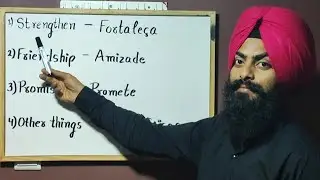 1) Strengthen - Fortaleça
2) Friendship - Amizade
3) Promis Promete
4) Other things